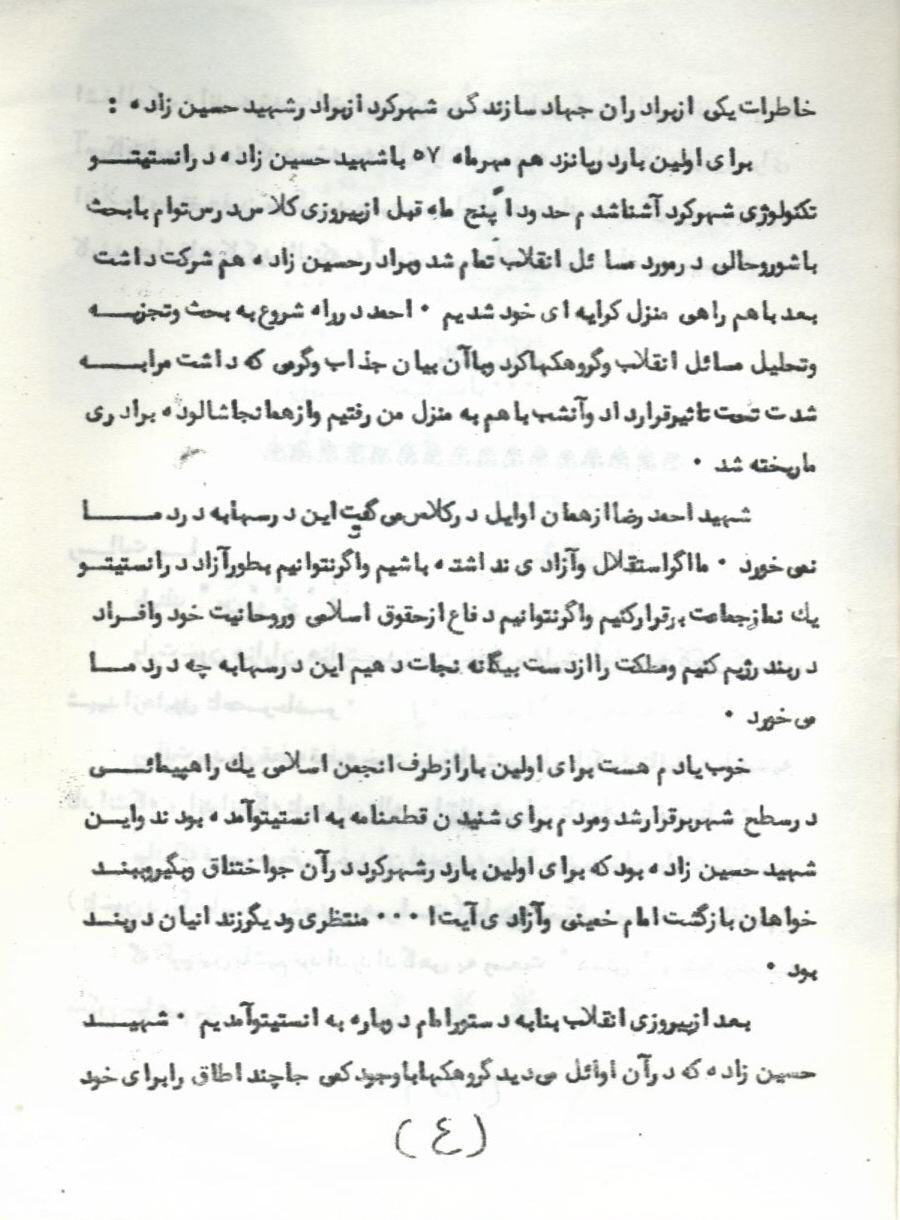 خاطرات یکی ازبراد ران جهاد سازندگی شهرکرد ازبراد رشهید حسین زاده :
برای اولین بارد رپانزد هم مهرماه ۵۷ باشهید حسین زاده د رانستیتو
تکنولوژی شهرکرد آشناشد م حدود ا پنج ماه قبل ازپیروزی کلاس درس توام بابحث
باشوروحالی د رمورد مسائل انقلاب تمام شد وبراد رحسین زاده هم شرکت داشت
بعد باهم راهی منزل کرایه ای خود شدیم ۰ احمد د رراه شروع به بحث وتجزیه
وتحلیل مسائل انقلاب وگروهکهاکرد وباآن بیان جذاب وگرمی که داشت مرابه
شدت تحت تاثیرقرارداد وآنشب باهم به منزل من رفتیم وازهمانجاشالوده برادری
ماریخته شد ۰
شهید احمد رضا ازهمان اوایل د رکلاس می گفت این د رسهابه د رد ما
نمی خورد ۰ مااگراستقلال وآزادی نداشته باشیم واگرنتوانیم بطورآزاد د رانستیتو
یك نمازجماعت برقرارکنیم واگرنتوانیم دفاع ازحقوق اسلامی وروحانیت خود وافراد
د ربند رژیم کنیم ومملکت راازدست بیگانه نجات دهیم این د رسهابه چه د رد ما
می خورد ۰
خوب یاد م هست برای اولین بارازطرف انجمن اسلامی یك راهپیمائی
د رسطح شهربرقرارشد ومردم برای شنیدن قطعنامه به انستیتوآمده بودند واین
شهید حسین زاده بود که برای اولین بارد رشهرکرد درآن جواختناق وبگیروببند
خواهان بازگشت امام خمینی وآزادی آیت ا ۰۰۰ منتظری ودیگرزندانیان د ربند
بود ۰
بعد ازپیروزی انقلاب بنابه دستورامام دوباره به انستیتوآمدیم ۰ شهید
حسین زاده که درآن اوائل می دید گروهکهاباوجود کمی جاچند اطاق رابرای خود
(٤)